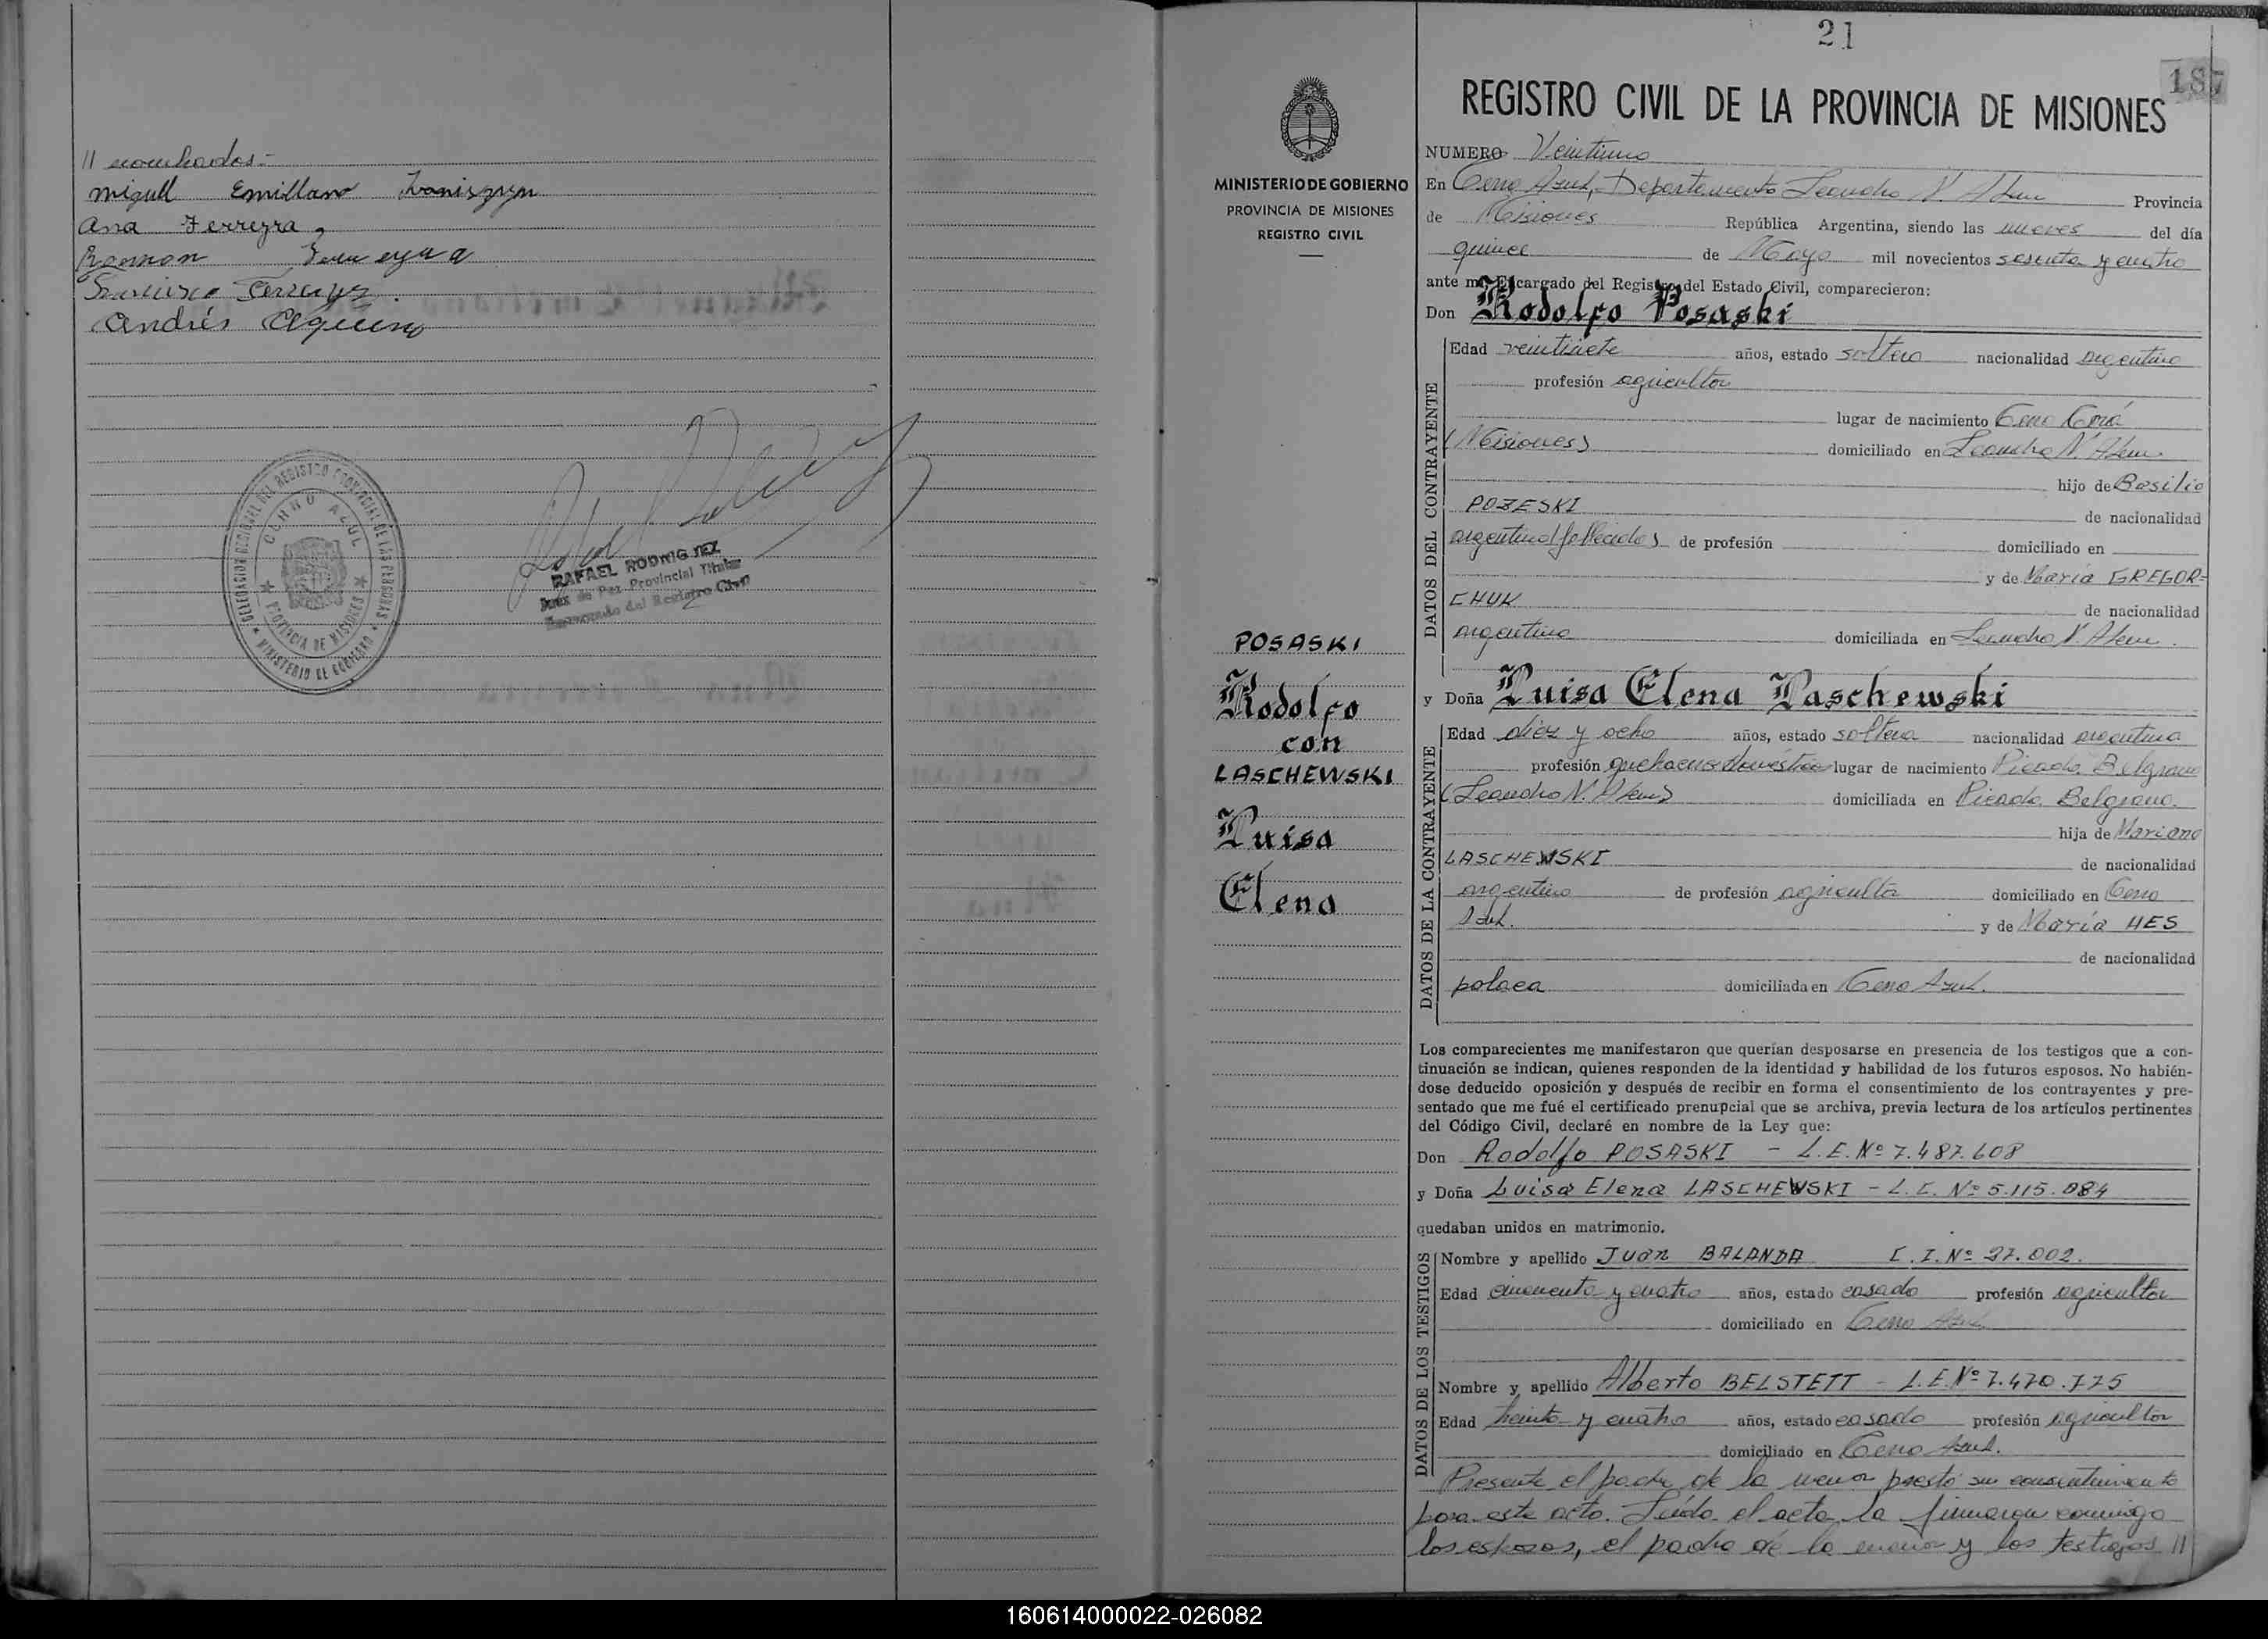 // nombrados.-
Miguel Emiliano Iwaniszyn
Ana Ferreyra
Ramon Ferreyra
Francisco Ferreyra
Andrés Aquino
DELEGACION REGIONAL DEL REGISTRO PROVINCIAL DE LAS PERSONAS
CERRO AZUL
PROVINCIA DE MISIONES
MINISTERIO DE GOBIERNO
RAFAEL RODRIGUEZ
Juez de Paz Provincial Titular
Encargado del Registro Civil
21
187
MINISTERIO DE GOBIERNO
PROVINCIA DE MISIONES
REGISTRO CIVIL
POSASKI
Rodolfo
con
LASCHEWSKI
Luisa
Elena
REGISTRO CIVIL DE LA PROVINCIA DE MISIONES
NUMERO Veintiuno
En Cerro Azul, Departamento Leandro N. Alem Provincia
de Misiones República Argentina, siendo las nueve del día
quince de Mayo mil novecientos sesenta y cuatro
ante mí Encargado del Registro del Estado Civil, comparecieron:
Don Rodolfo Posaski
DATOS DEL CONTRAYENTE
Edad veintisiete años, estado soltero nacionalidad argentino
profesión agricultor
lugar de nacimiento Cerro Corá
(Misiones) domiciliado en Leandro N. Alem
hijo de Basilio
POZESKI de nacionalidad
argentino (fallecido) de profesión domiciliado en
y de María GREGOR=
CHUK de nacionalidad
argentina domiciliada en Leandro N. Alem.
y Doña Luisa Elena Laschewski
DATOS DE LA CONTRAYENTE
Edad diez y ocho años, estado soltera nacionalidad argentina
profesión quehaceres domésticos lugar de nacimiento Picada Belgrano
(Leandro N. Alem) domiciliada en Picada Belgrano.
hija de Mariano
LASCHEWSKI de nacionalidad
argentino de profesión agricultor domiciliado en Cerro
Azul. y de María HES
de nacionalidad
polaca domiciliada en Cerro Azul.
Los comparecientes me manifestaron que querían desposarse en presencia de los testigos que a con-
tinuación se indican, quienes responden de la identidad y habilidad de los futuros esposos. No habién-
dose deducido oposición y después de recibir en forma el consentimiento de los contrayentes y pre-
sentado que me fué el certificado prenupcial que se archiva, previa lectura de los artículos pertinentes
del Código Civil, declaré en nombre de la Ley que:
Don Rodolfo POSASKI - L.E. Nº 7.487.608
y Doña Luisa Elena LASCHEWSKI - L.C. Nº 5.115.084
quedaban unidos en matrimonio.
DATOS DE LOS TESTIGOS
Nombre y apellido Juan BALANDA C.I. Nº 27.002.
Edad cincuenta y cuatro años, estado casado profesión agricultor
domiciliado en Cerro Azul
Nombre y apellido Alberto BELSTETT - L.E. Nº 7.470.775
Edad treinta y cuatro años, estado casado profesión agricultor
domiciliado en Cerro Azul.
Presente el padre de la menor prestó su consentimiento
para este acto. Leída el acta la firmaron conmigo
los esposos, el padre de la menor y los testigos //
160614000022-026082